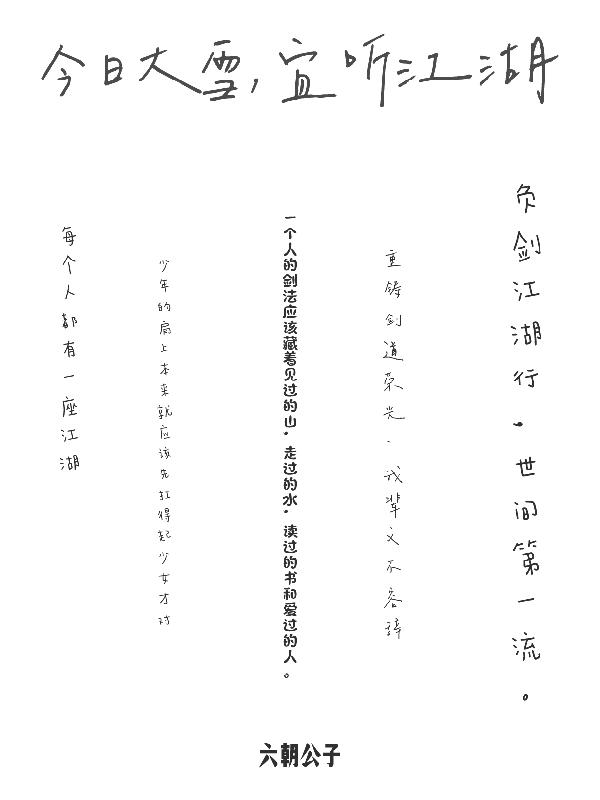 今日大雪,宜听江湖
负剑江湖行.世间第一流。
重铸剑道荣光.我辈义不容辞
一个人的剑法应该藏着见过的山.走过的水.读过的书和爱过的人。
少年的肩上本来就应该先扛得起少女才对
每个人都有一座江湖
六朝公子